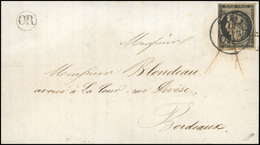 OR
Monsieur
Monsieur Blondeau
avoué à la Cour
Bordeaux